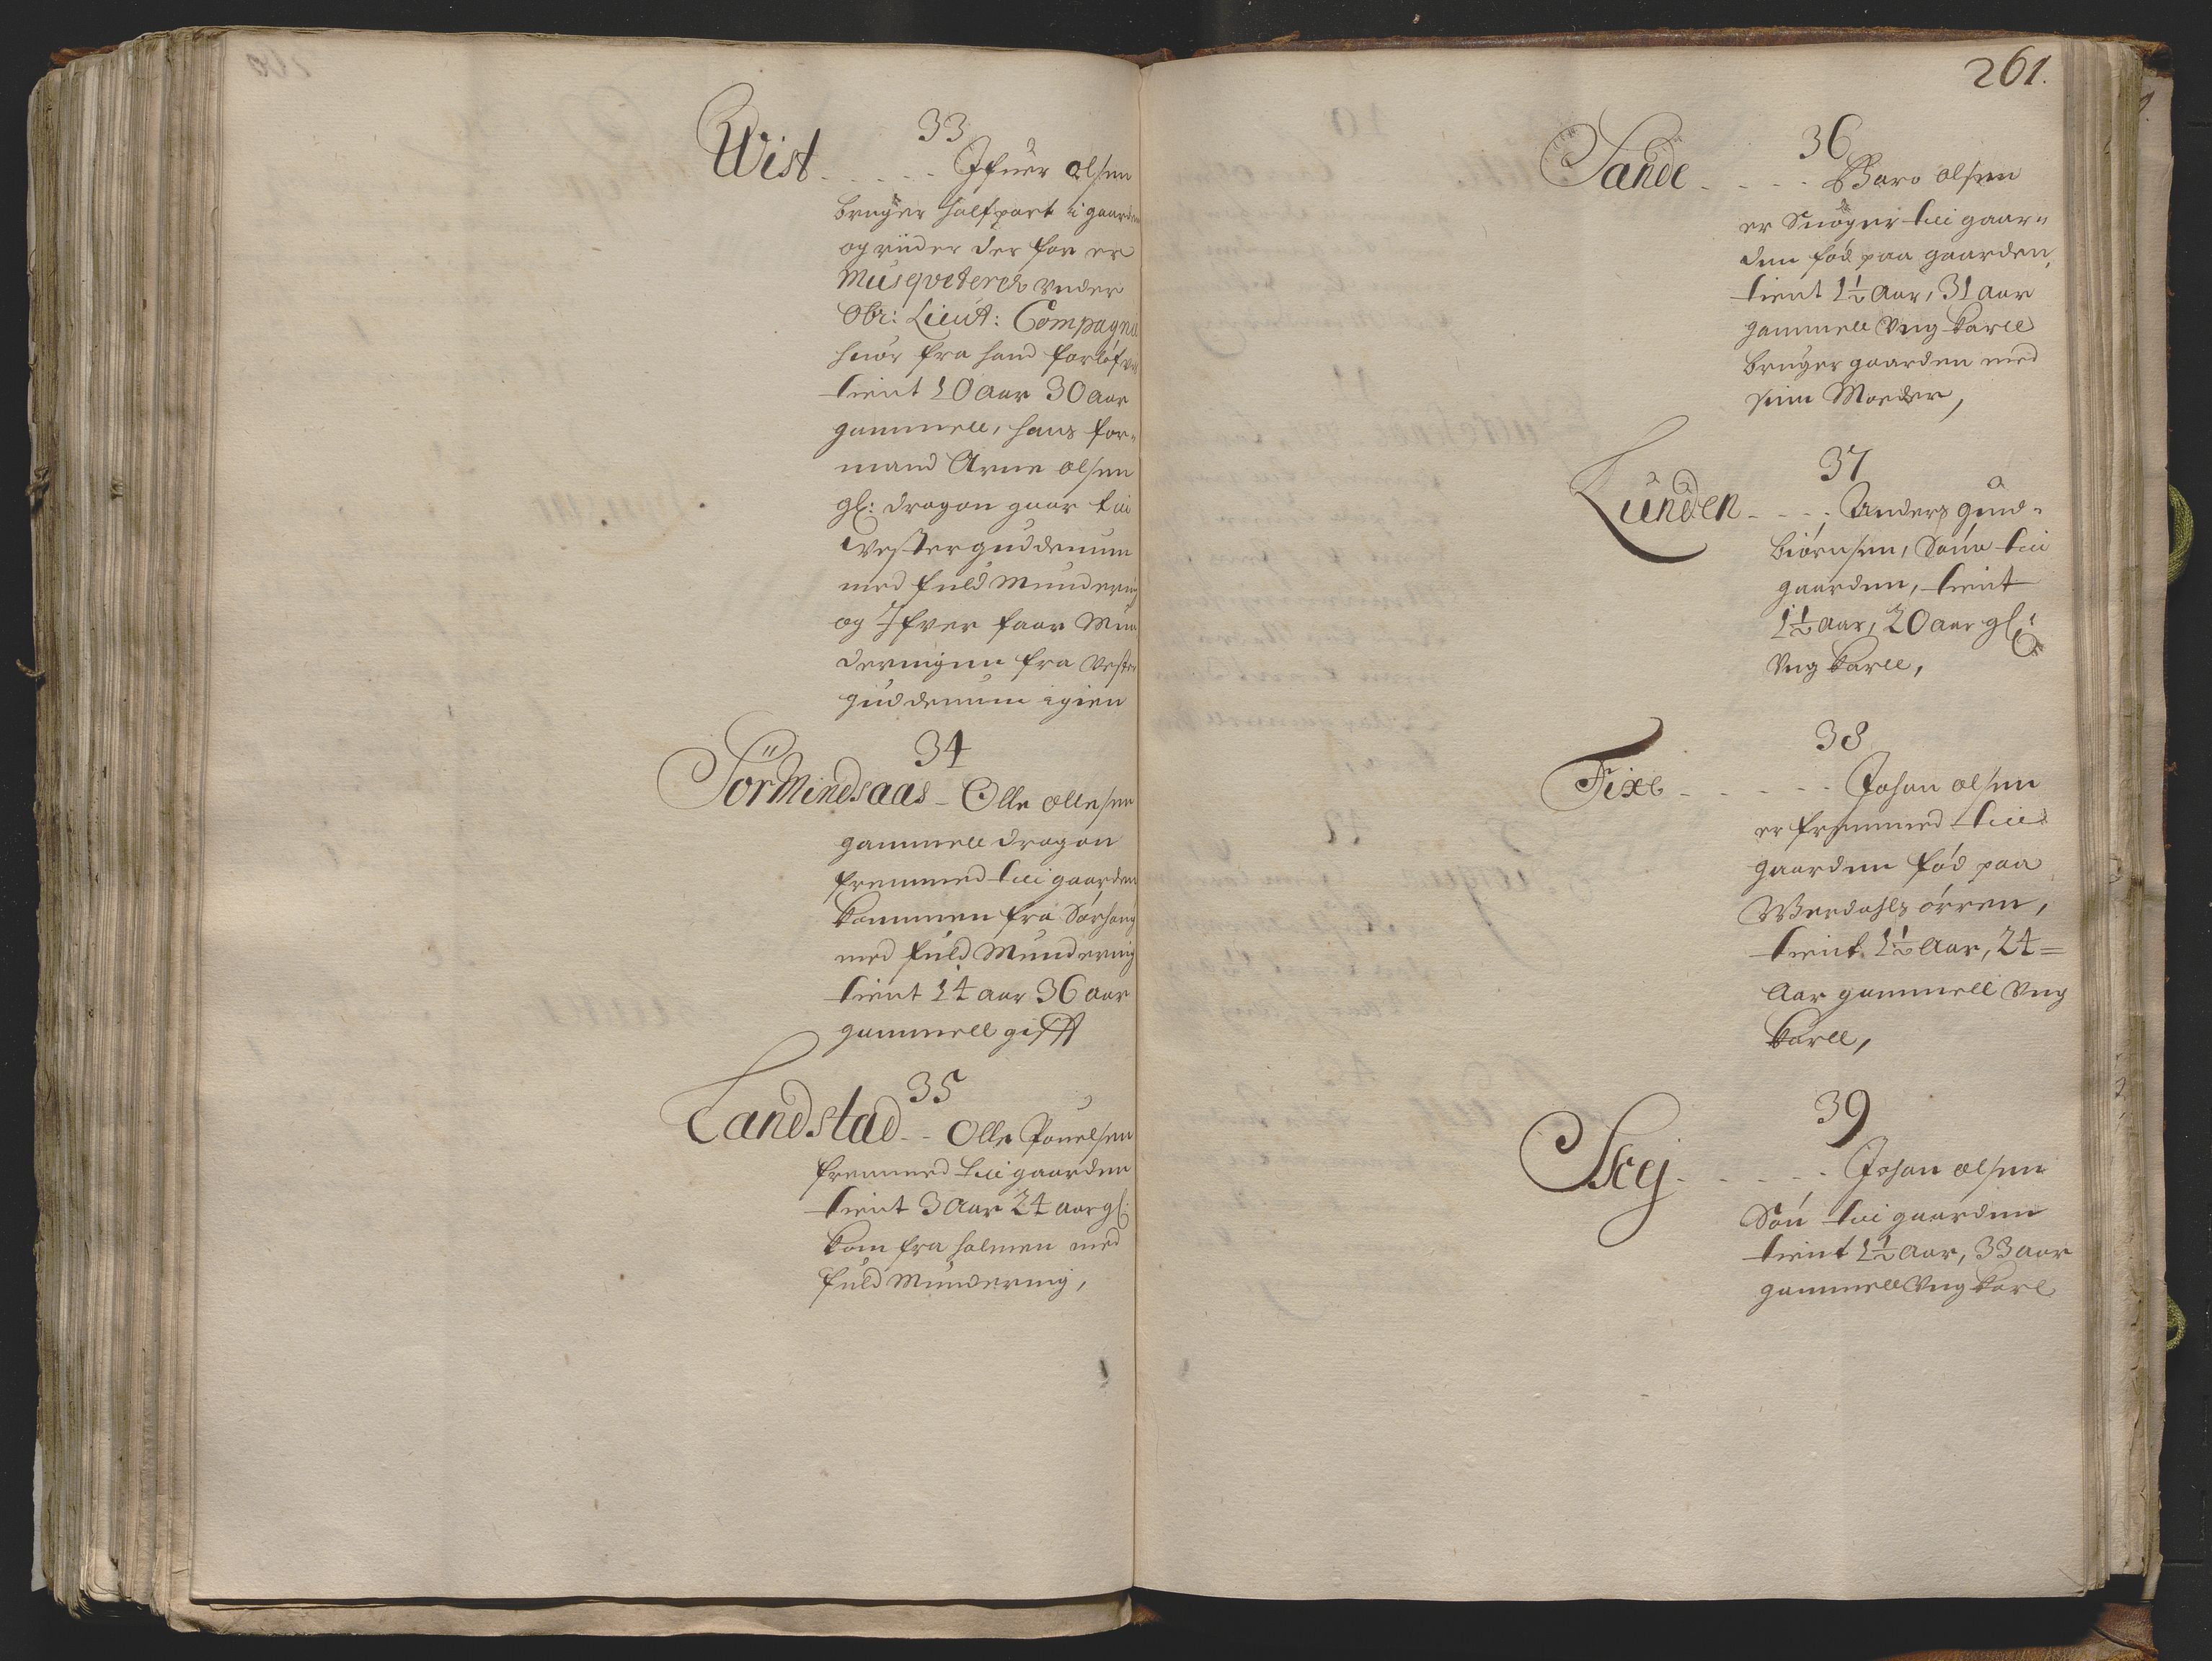 33
Wist - - - - - Ifuer olsen
bruger halfpart i gaarden
og riider der for er
Musqveterer vnder
Obr: Lieut: Compagni
huor fra hand forlofves
tient 10 aar 30 aar
gammell, hans for=
mand Arne olsen
gl: dragon gaar till
Vesterguddemum
med fuld Mundering
og Ifver faar Mun
deringen fra Vester
guddemum igien
34
Sör Mindsaas - Olle ollesen
gammell dragon
fremmed till gaarden
kommen fra Sörhoug
med fuld Mundering
tient 14 aar 36 aar
gammell gifft
35
Landstad - - Olle Pouelsen
fremmed till gaarden
tient 3 aar 24 aar gl:
kom fra holmen med
fuld Mundering,
261.
36
Sande - - - - Baro olsen
er Suoger till gaar=
den fód paa gaarden,
tient 1½ Aar, 31 aar
gammell Vng karll
bruger gaarden med
sinn Moeder,
37
Lunden - - - - Anders gud=
biörnsen, Sönn till
gaarden, tient
1½ aar, 20 aar gl:
Vng karll,
38
Fixe - - - - - Johan olsen
er fremmed till
gaarden fód paa
Werdahls örren,
tient 1½ Aar, 24=
Aar gammell Vng
karll,
39
Skej - - - - - Johan olsen
Sön till gaarden
tient 1½ Aar, 33 aar
gammell Vng karl